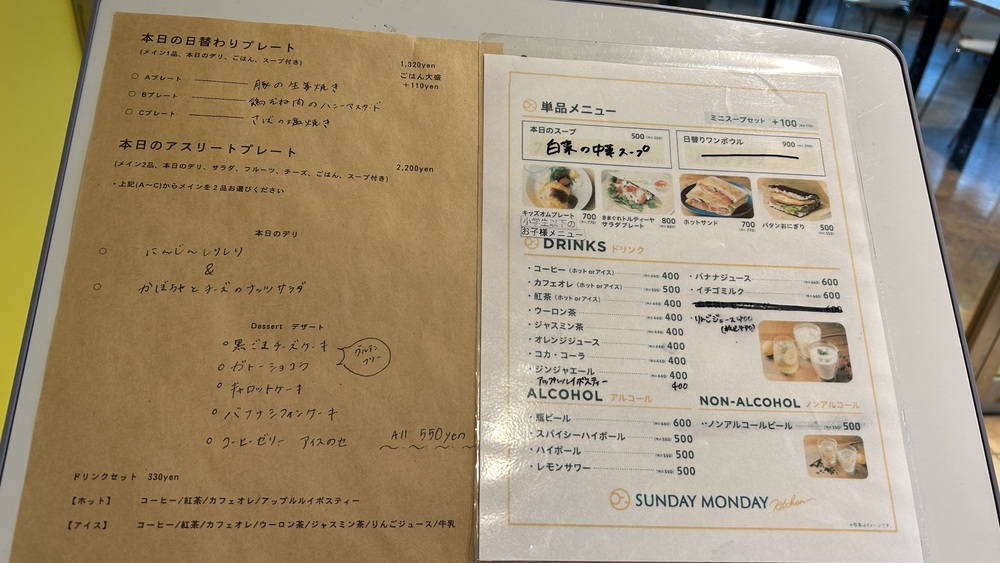 本日の日替わりプレート
(メイン1品、本日のデリ、ごはん、スープ付き)
1,320yen
ごはん大盛
+110yen
○ Aプレート 豚の生姜焼き
○ Bプレート 鶏むね肉のハニーマスタード
○ Cプレート さばの塩焼き
本日のアスリートプレート
(メイン2品、本日のデリ、サラダ、フルーツ、チーズ、ごはん、スープ付き)
2,200yen
・上記(A〜C)からメインを2品お選びください
本日のデリ
○ にんじんしりしり
&
○ かぼちゃとチーズのナッツサラダ
Dessert デザート
○黒ごまチーズケーキ
グルテンフリー
○ガトーショコラ
○キャロットケーキ
○バナナシフォンケーキ
○コーヒーゼリー アイスのせ
All 550yen
ドリンクセット 330yen
【ホット】 コーヒー/紅茶/カフェオレ/アップルルイボスティー
【アイス】 コーヒー/紅茶/カフェオレ/ウーロン茶/ジャスミン茶/りんごジュース/牛乳
単品メニュー
ミニスープセット +100
本日のスープ 500
白菜の中華スープ
日替りワンボウル 900
キッズオムプレート 700
小学生以下の
お子様メニュー
きまぐれトルティーヤ
サラダプレート 800
ホットサンド 700
パタンおにぎり 500
DRINKS ドリンク
・コーヒー(ホット or アイス) 400
・カフェオレ(ホット or アイス) 500
・紅茶(ホット or アイス) 400
・ウーロン茶 400
・ジャスミン茶 400
・オレンジジュース 400
・コカ・コーラ 400
・ジンジャエール 400
アップルルイボスティー 400
・バナナジュース 600
・イチゴミルク 600
600
・りんごジュース 400
ALCOHOL アルコール
・瓶ビール 600
・スパイシーハイボール 500
・ハイボール 500
・レモンサワー 500
NON-ALCOHOL ノンアルコール
・ノンアルコールビール 500
SUNDAY MONDAY Kitchen
※写真はイメージです。